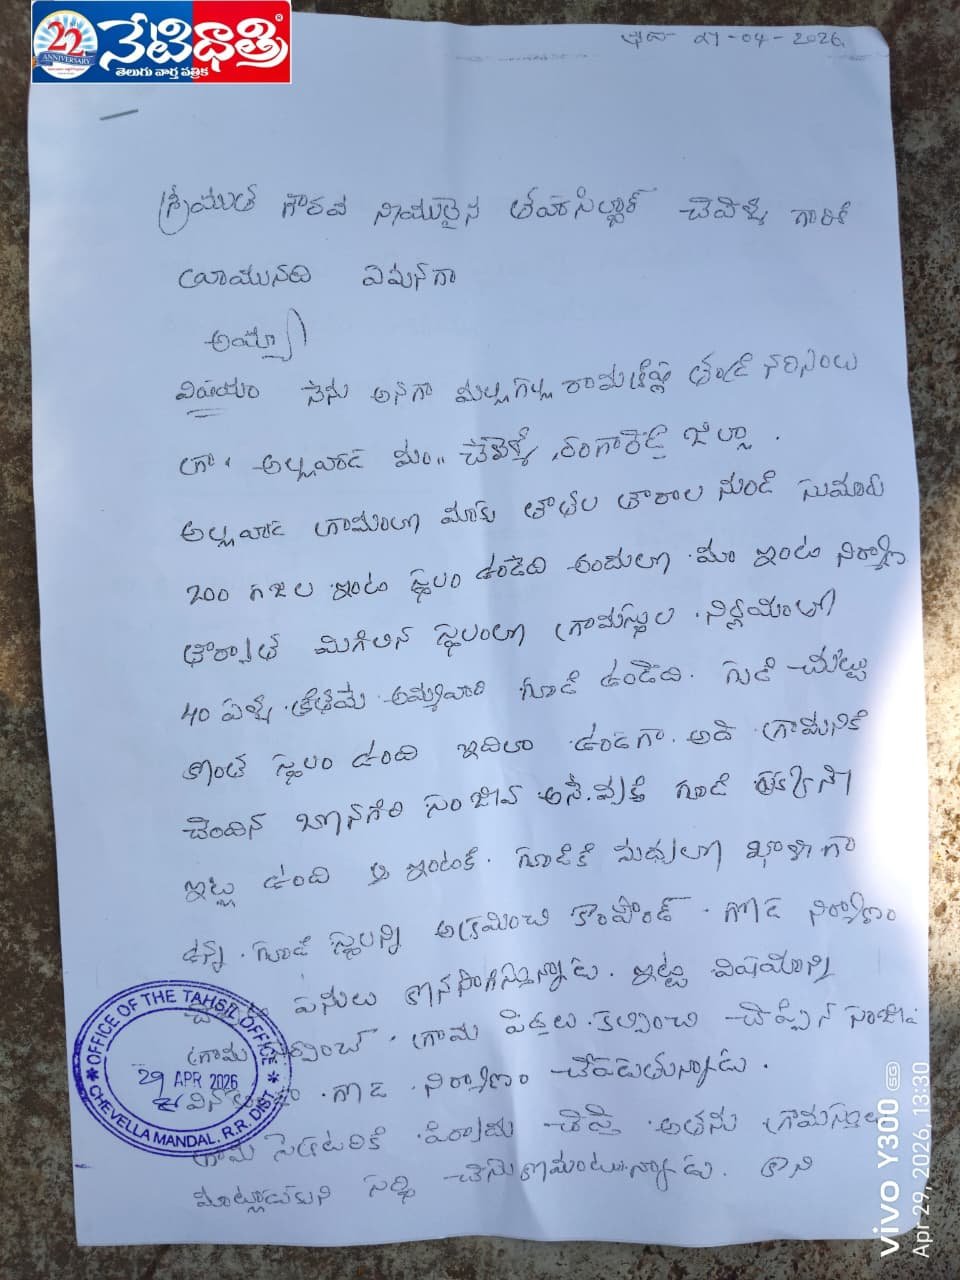 22
ANNIVERSARY
నేటిధాత్రి
తెలుగు వార్త పత్రిక
27-04-2026
శ్రీయుత గౌరవ నీయులైన తహసిల్దార్ చేవెళ్ళ గారికి
యీయునది విమనగా
అయ్యా
విషయం నేను అనగా మల్లగళ్ల రామకృష్ణ తండ్రి నర్సింలు
గ్రా. అల్లవాడ మం.. చేవెళ్ళ, రంగారెడ్డి జిల్లా.
అల్లవాడ గ్రామంలో మాకు తాతల తారాల నుండి సుమారు
200 గజల ఇంటు స్థలం ఉండేది అందులో మా ఇంటు నిర్మాణ
తర్వాత మిగిలిన స్థలంలో గ్రామస్థుల నిర్ణయంలో
40 ఏళ్ళ క్రితమే అమ్మవారి గూడి ఉండేది. గుడి చుట్టు
కొంత స్థలం ఉంది ఇదిలా ఉండగా అది గ్రామనికి
చెందిన సంజీవ అనే వ్యక్తి గూడి ప్రక్కనే
ఇల్లు ఉంది ఆ ఇంటికి గూడికి మధ్యలో ఖాళీగా
ఉన్న గూడి స్థలన్ని అక్రమించి కాంపౌండ్ గోడ నిర్మాణం
పనులు కొనసాగిస్తున్నాడు. ఇట్టి విషయాన్ని
గ్రామ గ్రామ పెద్దలు కల్పించి చెప్పిన సంజీవ
గోడ నిర్మాణం చేపడుతున్నాడు.
గ్రామ సెక్రటరికి పిర్యాదు చేస్తే అతను గ్రామస్తుల
మాట్లాడుకుని సర్ది చేసుకోమంటున్నాడు. కాని
OFFICE OF THE TAHSIL OFFICE
29 APR 2026
CHEVELLA MANDAL, R.R. DIST.
vivo Y300 5G
Apr 29, 2026, 13:30